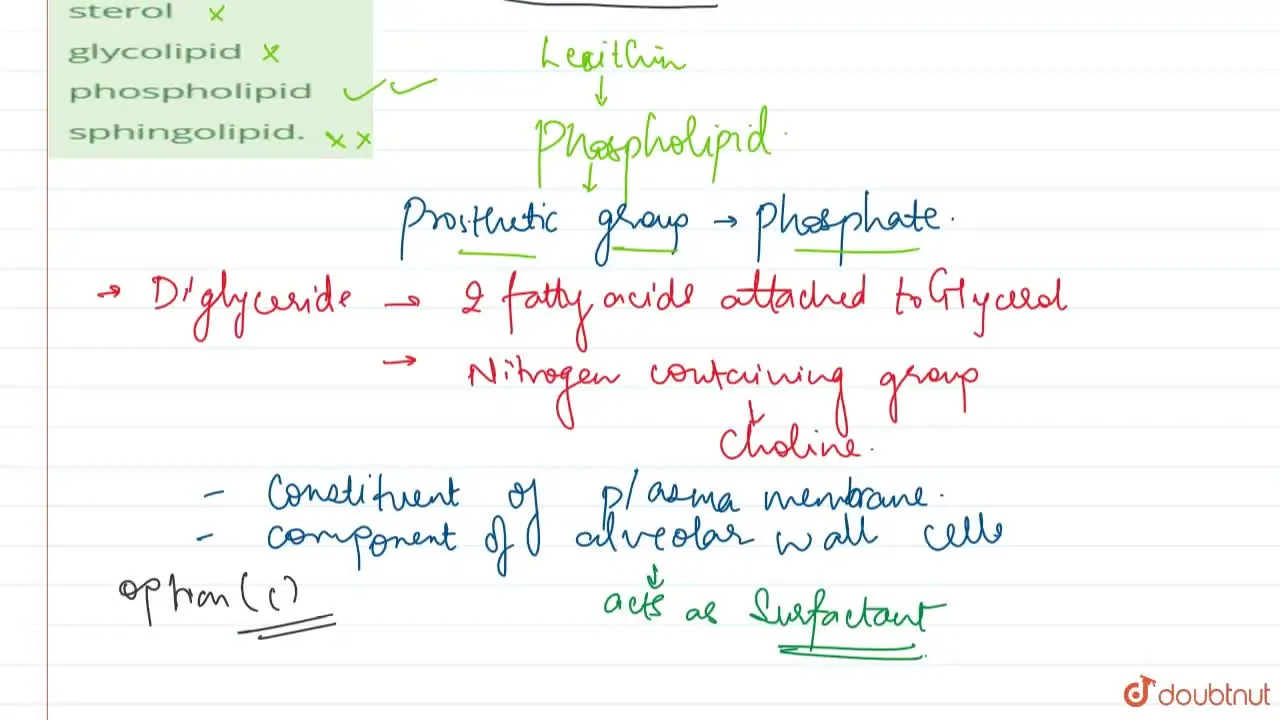 sterol x
glycolipid x
phospholipid ✓✓
sphingolipid. x x
Lecithin
↓
Phospholipid.
↓
Prosthetic group → Phosphate.
→ Diglyceride → 2 fatty acids attached to Glycerol
→ Nitrogen containing group
↓
Choline.
- Constituent of plasma membrane.
- component of alveolar wall cells
↓
option (c)
acts as Surfactant
doubtnut